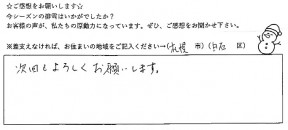 ☆ご感想をお願いします☆
今シーズンの寿司はいかがでしたか？
お客様の声が、私たちの原動力になっています。ぜひ、ご感想をお聞かせ下さい。
※差支えなければ、お住まいの地域をご記入ください→(札幌 市)(中央 区)
次回もよろしくお願いします。